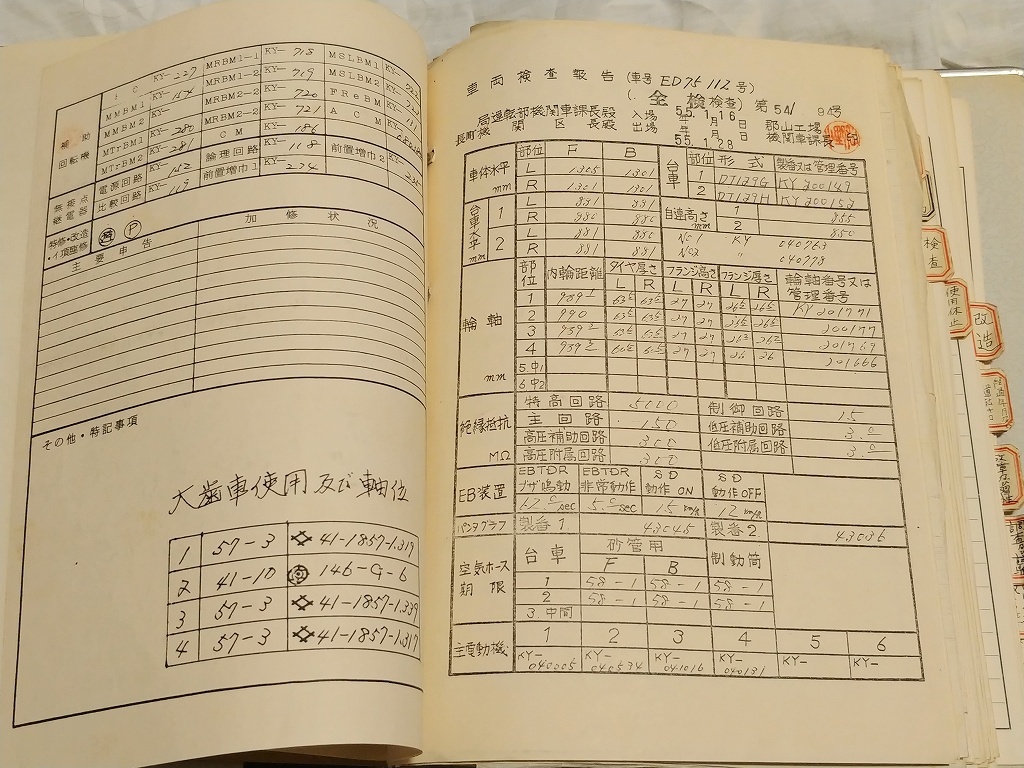 補助
回転機
KY-227
MRBM1-1 KY-718 MSLBM1 KY-
MMBM1 KY-154 MRBM1-2 KY-719 MSLBM2 KY-
MMBM2 KY- MRBM2-2 KY-720 FReBM KY-
MTrBM1 KY-280 MRBM2-2 KY-721 ACM KY-
MTrBM2 KY-281 CM KY-186
無接点
継電器
電源回路 KY-152 論理回路 KY-118 前置増巾2 KY-
比較回路 KY-119 前置増巾1 KY-234
特修・改造
・イ項臨修
P
主要申告
加修状況
その他・特記事項
大歯車使用及び軸位
1 57-3 41-1857-1.317
2 41-10 146-G-6
3 57-3 41-1857-1.339
4 57-3 41-1857-1.317
車両検査報告(車号 ED75 112号)
(全検検査) 第54/ 94号
局運転部機関車課長殿 入場 55年1月16日 郡山工場
長町機関区長殿 出場 55年1月28日 機関車課長
部位 F B
車体水平 mm
L 1305 1301
R 1301 1301
台車 部位 形式 製番又は管理番号
1 DT129G KY200149
2 DT129H KY200153
台車水平 mm
1 L 881 881
R 880 880
2 L 881 880
R 881 881
自連高さ mm
1 855
2 850
No1 KY 040763
No2 〃 040778
輪軸 mm
部位 内輪距離 タイヤ厚さ フランジ高さ フランジ厚さ 輪軸番号又は管理番号
L R L R L R
1 27 27 KY201771
2 990 27 27 200177
3 27 27 201769
4 27 27 26 26 201666
5.中1
6中2
絶縁抵抗 MΩ
特高回路 5000 制御回路 15
主回路 150 低圧補助回路 3.0
高圧補助回路 300 低圧附属回路 3.0
高圧附属回路 300
EB装置
EBTDR ブザ鳴動 EBTDR 非常動作 SD 動作ON SD 動作OFF
12.0sec 5.0sec 15km/h 12km/h
パンタグラフ 製番1 43045 製番2 43036
空気ホース期限
台車 砂管用 制動筒
F B
1 58-1 58-1 58-1
2 58-1 58-1 58-1
3.中間
主電動機 1 2 3 4 5 6
KY-040005 KY-040534 KY-041016 KY-040131 KY- KY-
検査
使用休止
改造